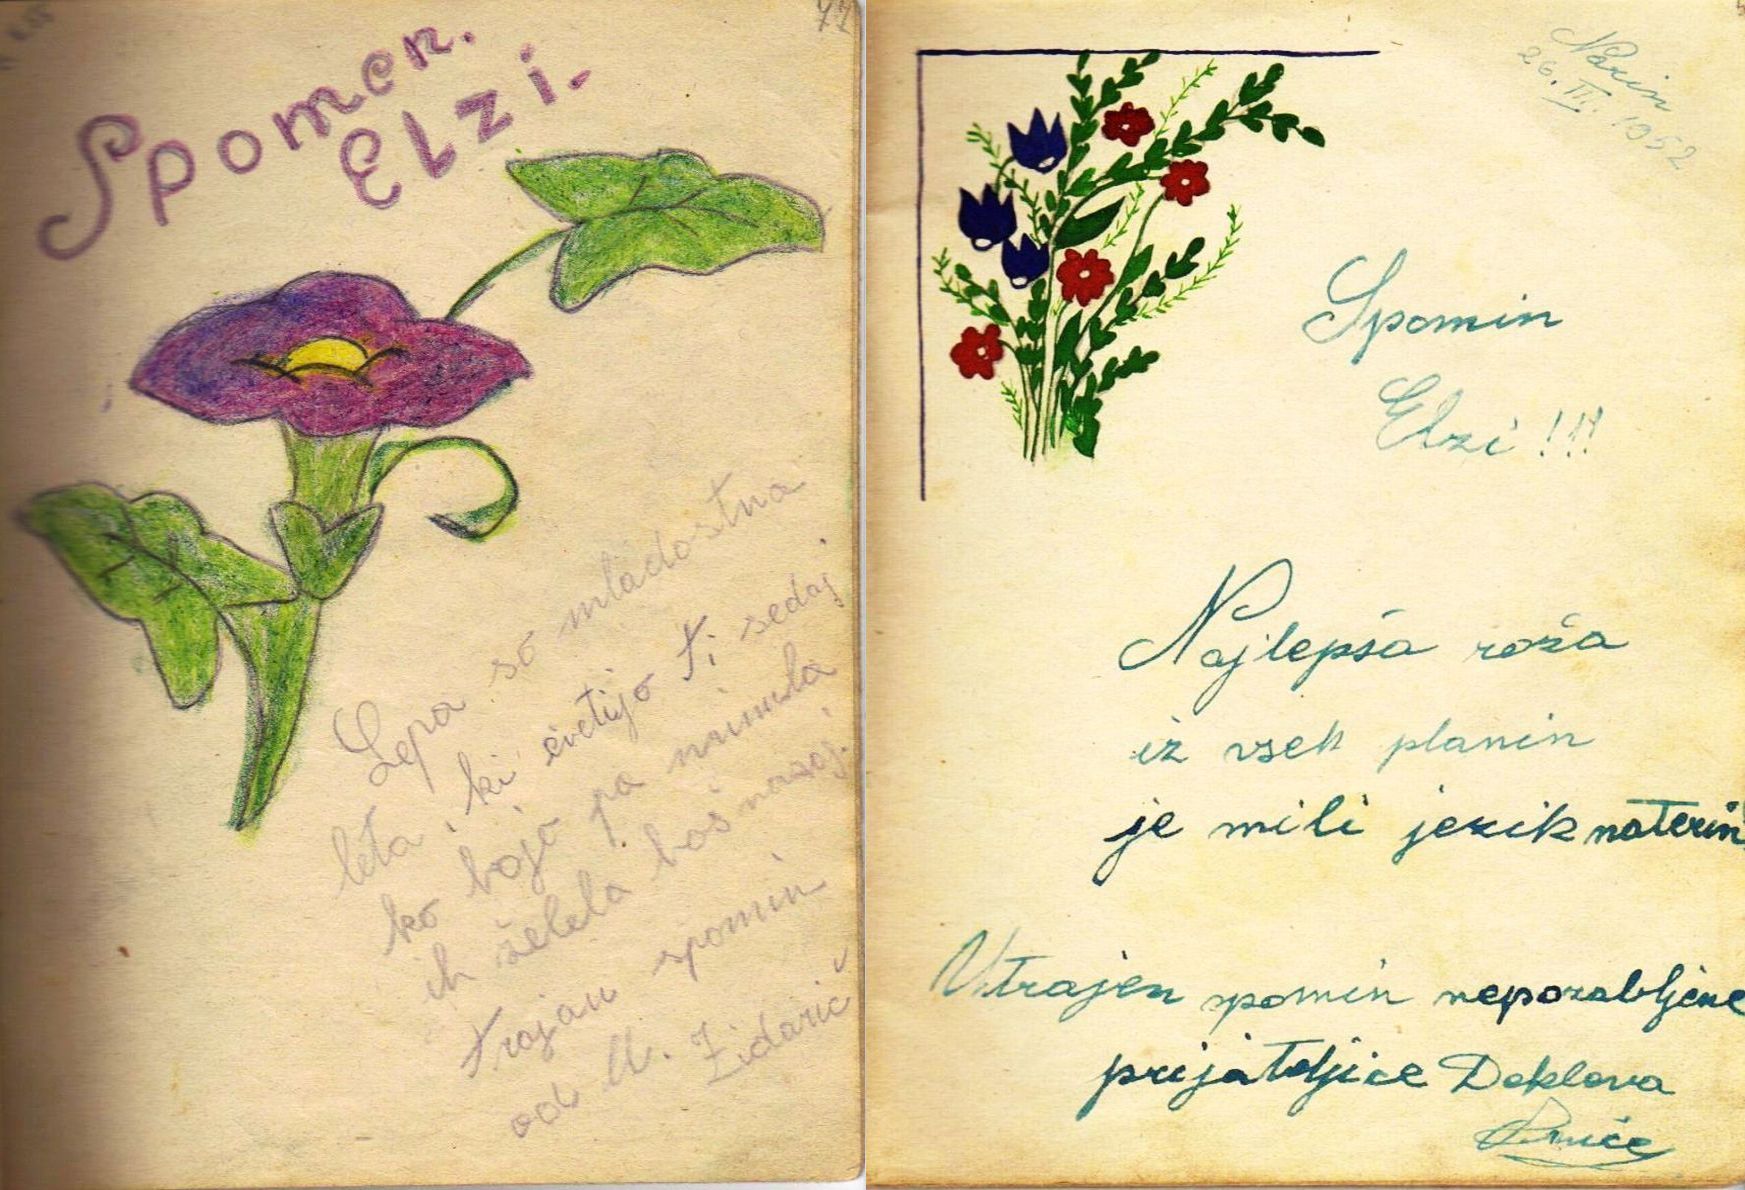 77
Spomen.
Elzi.
Lepa so mladostna
leta, ki cvetijo Ti sedaj
ko bojo pa minula
ih želela boš nazaj.
trajan spomin
od M. Zidarič
Narin
26. III. 1952
Spomin
Elzi !!!
Najlepša roža
iz vseh planin
je mili jezik materin
V trajen spomin nepozabljene
prijateljice Deklova